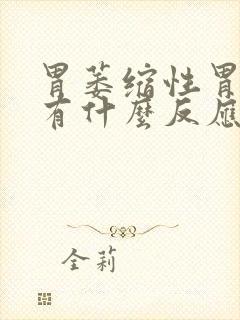 胃萎缩性胃
有什麼反應
全莉